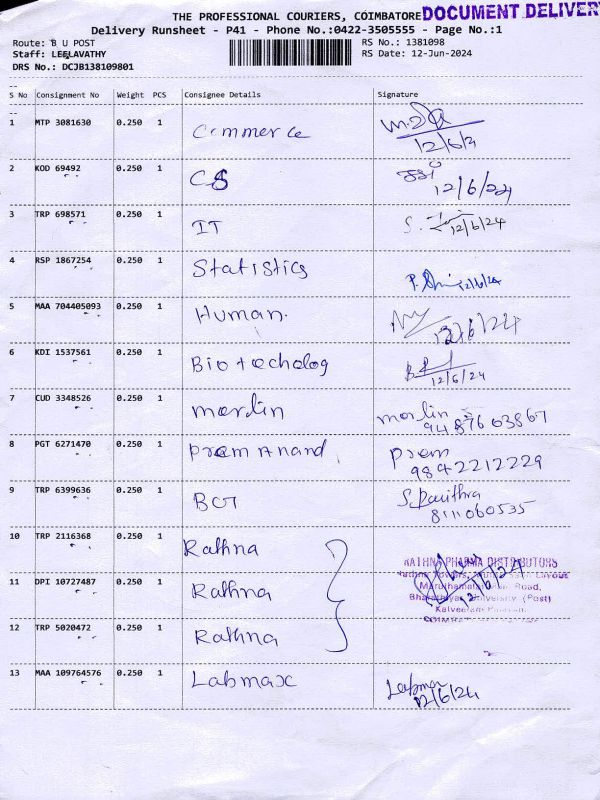 THE PROFESSIONAL COURIERS, COIMBATORE DOCUMENT DELIVER
Delivery Runsheet - P41 - Phone No.:0422-3505555 - Page No.:1
Route: B U POST RS No.: 1381098
Staff: LEELAVATHY RS Date: 12-Jun-2024
DRS No.: DCJB138109801
S No Consignment No Weight PCS Consignee Details Signature
1 MTP 3081630 0.250 1 Commerce
12/6/
2 KOD 69492 0.250 1 CS
12/6/24
3 TRP 698571 0.250 1 IT S. 12/6/24
4 RSP 1867254 0.250 1 Statistics P. 12/6/24
5 MAA 704405093 0.250 1 Human. 12/6/24
6 KDI 1537561 0.250 1 Biotecholog
12/6/24
7 CUD 3348526 0.250 1 merlin merlin
9487603867
8 PGT 6271470 0.250 1 Prem Anand Prem
9842212229
9 TRP 6399636 0.250 1 BCT S.Pavithra
8111060535
10 TRP 2116368 0.250 1 Rathna
RATHNA PHARMA DISTRIBUTORS
11 DPI 10727487 0.250 1 Rathna 12/6/24
Road,
University (Post)
12 TRP 5020472 0.250 1 Rathna
13 MAA 109764576 0.250 1 Labmax
12/6/24